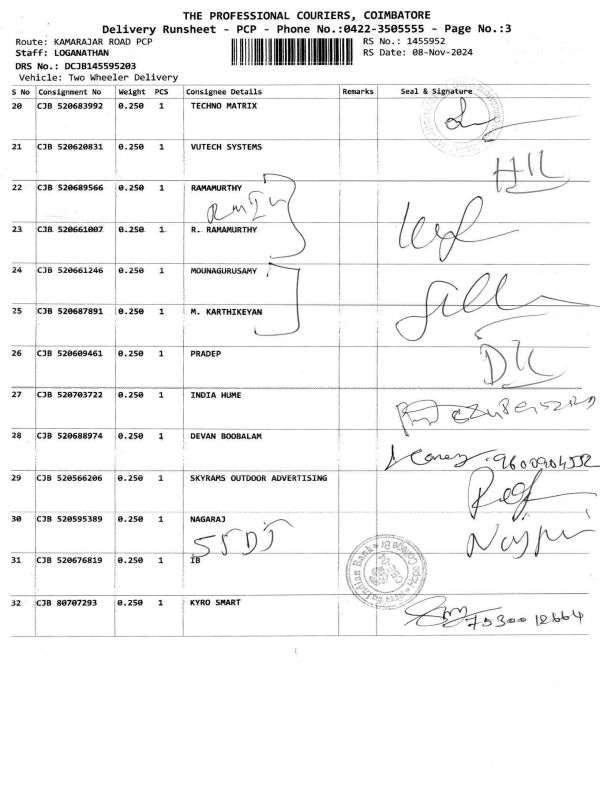 THE PROFESSIONAL COURIERS, COIMBATORE
Delivery Runsheet - PCP - Phone No.:0422-3505555 - Page No.:3
Route: KAMARAJAR ROAD PCP RS No.: 1455952
Staff: LOGANATHAN RS Date: 08-Nov-2024
DRS No.: DCJB145595203
Vehicle: Two Wheeler Delivery
S No Consignment No Weight PCS Consignee Details Remarks Seal & Signature
20 CJB 520683992 0.250 1 TECHNO MATRIX
21 CJB 520620831 0.250 1 VUTECH SYSTEMS
22 CJB 520689566 0.250 1 RAMAMURTHY
23 CJB 520661007 0.250 1 R. RAMAMURTHY
24 CJB 520661246 0.250 1 MOUNAGURUSAMY
25 CJB 520687891 0.250 1 M. KARTHIKEYAN
26 CJB 520609461 0.250 1 PRADEP
27 CJB 520703722 0.250 1 INDIA HUME
28 CJB 520688974 0.250 1 DEVAN BOOBALAM
9600904552
29 CJB 520566206 0.250 1 SKYRAMS OUTDOOR ADVERTISING
30 CJB 520595389 0.250 1 NAGARAJ
31 CJB 520676819 0.250 1 IB
Indian Bank
32 CJB 80707293 0.250 1 KYRO SMART